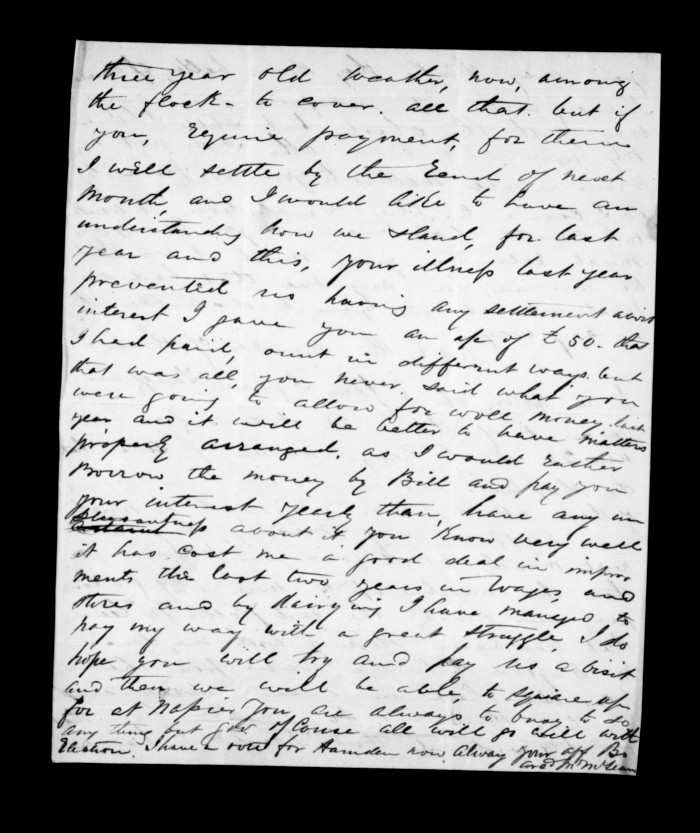 three year old weather, now, among
the flock - to cover. all that. but if
you, Equire payment, for them
I will settle by the Eend of next
Month, and I would like to have an
understanding how we stand, for. last
year and this, your illness last year
prevented us having any settlement about
interest I gave you an a/c of £50 - that
I had paid, out in different ways. but
that was all, you never. said what you
were going to allow for wool money. last
year and it will be better to have matters
properly arranged, as I would Eather
Borrow the money by Bill and pay you
your interest yearly than, have any un
pleasantness about it you Know very well
it has cost me a good deal in improve
ments the last two years in Wages and
stores and by dairying I have managed to
pay my way with a great struggle, I do
hope you will try and pay us a visit
and then we will be able, to square up
for at Napier you are always to busy to do
any thing but gov. Of Couse all will go well with
Election. I have a vote for Hamden now. Alway your aff Bro
Arcd Jn McLean